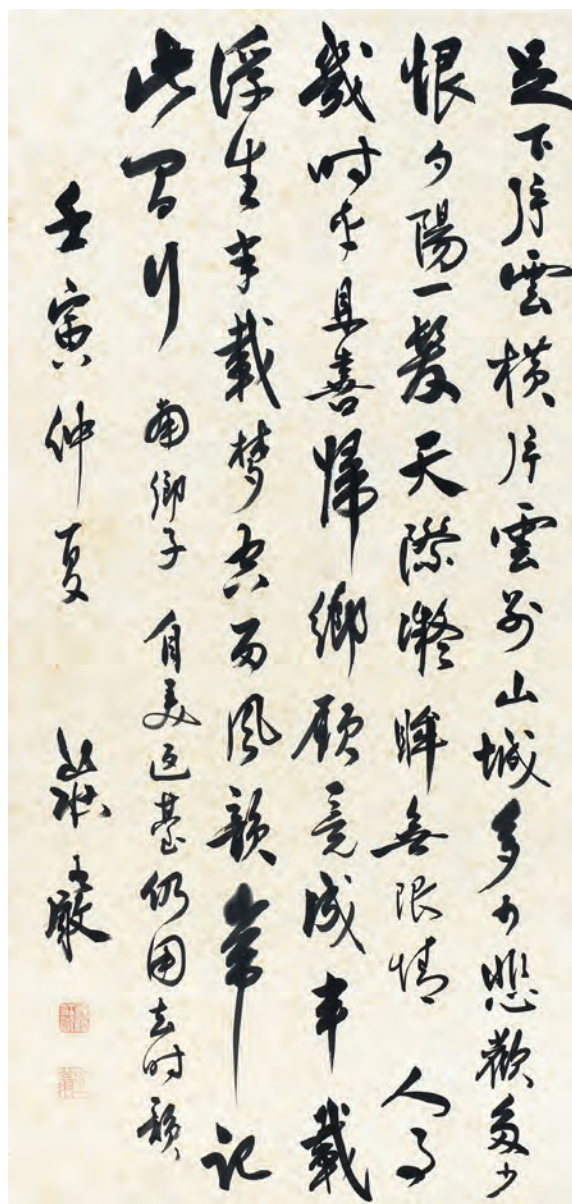 足下片雲橫片雲山城多少悲歡多少
恨夕陽一髮天際凝眸無限情 人事
幾時平且喜歸鄉願竟成半載
浮生半載夢空留風韻常記
此間行 南鄉子 自美返臺仍用去時韻
壬寅仲夏 莊嚴